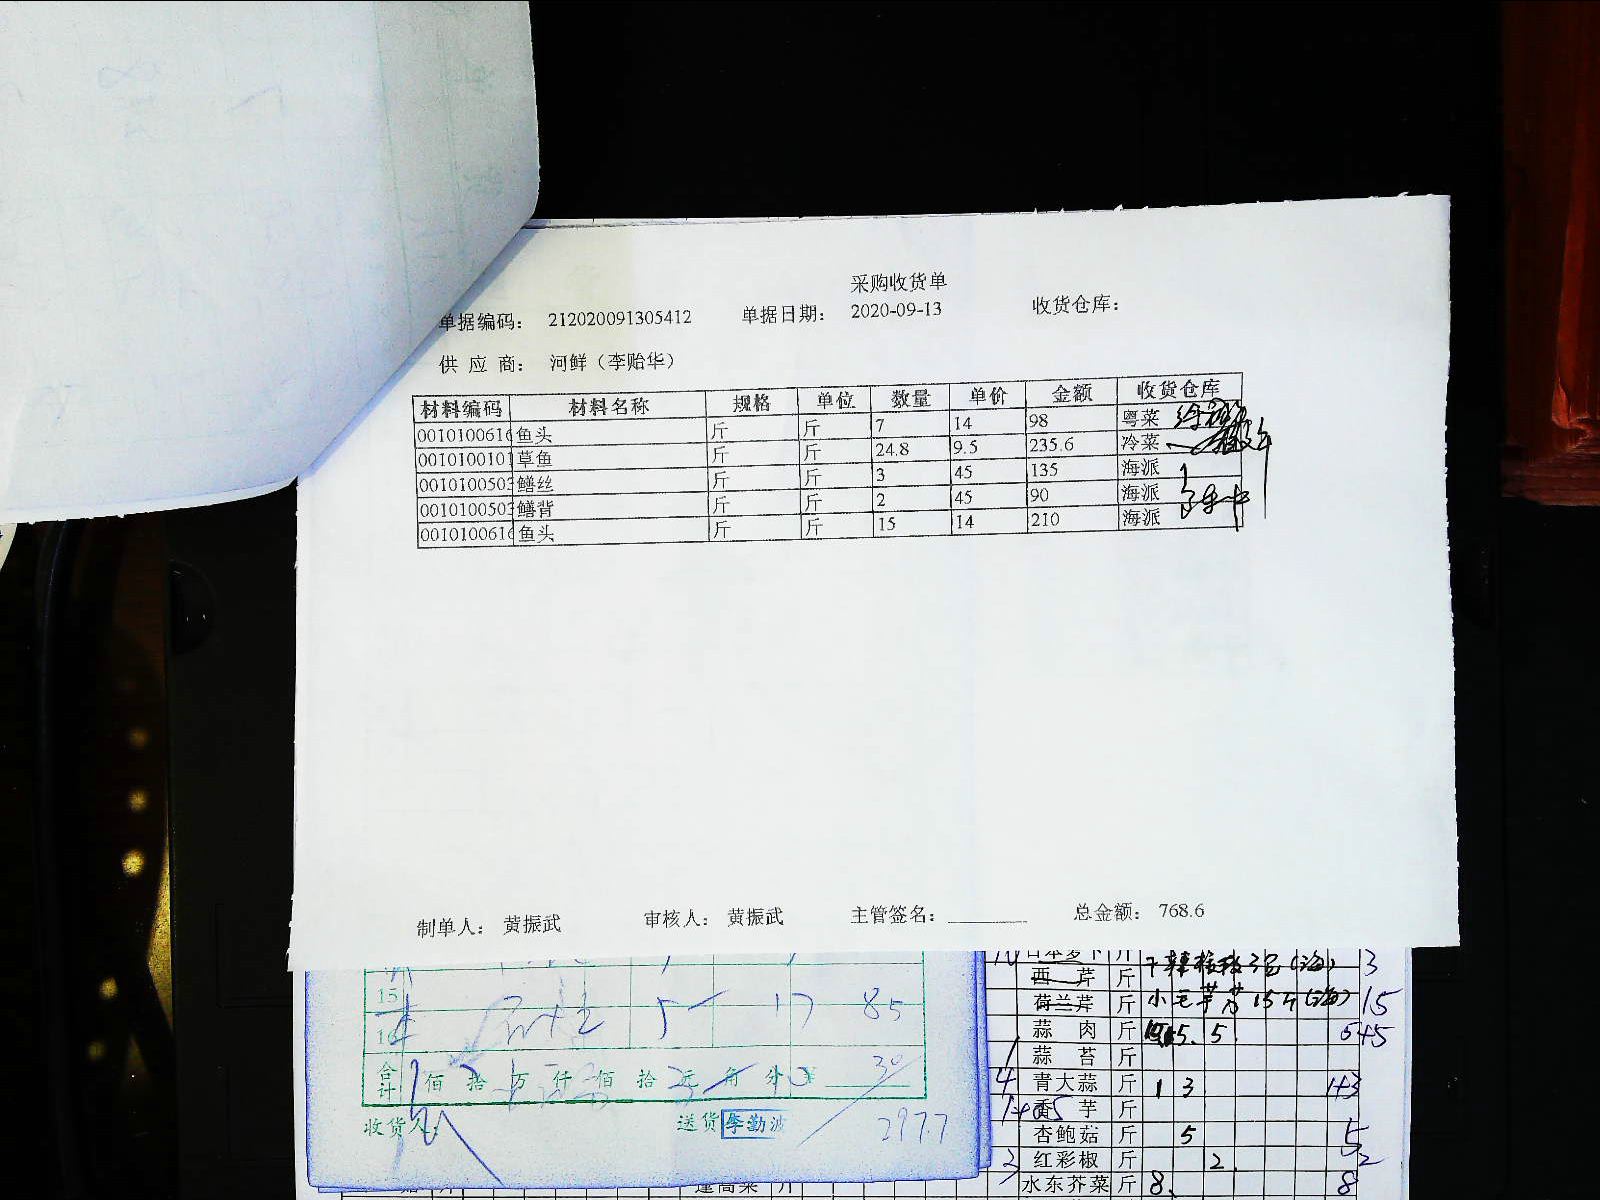 采购收货单
单据编码： 212020091305412 单据日期： 2020-09-13 收货仓库：
供 应 商： 河鲜（李贻华）
材料编码 材料名称 规格 单位 数量 单价 金额 收货仓库
0010100616 鱼头 斤 斤 7 14 98 粤菜
0010100101 草鱼 斤 斤 24.8 9.5 235.6 冷菜
0010100503 鳝丝 斤 斤 3 45 135 海派
0010100503 鳝背 斤 斤 2 45 90 海派
0010100616 鱼头 斤 斤 15 14 210 海派
制单人： 黄振武 审核人： 黄振武 主管签名： 总金额： 768.6
15
16 5 17 85
合计 佰 拾 万 仟 佰 拾 元 角 分 ¥ 30
收货人： 送货 李勤波 297.7
日本萝卜 斤 3
西 芹 斤
荷兰芹 斤 小毛芋艿 15斤(海) 15
蒜 肉 斤 5. 5 5+5
蒜 苔 斤
4 青大蒜 斤 1 3 1+3
香 芋 斤
杏鲍菇 斤 5 5
红彩椒 斤 2 2
水东芥菜 斤 8 8
蓬蒿菜 斤